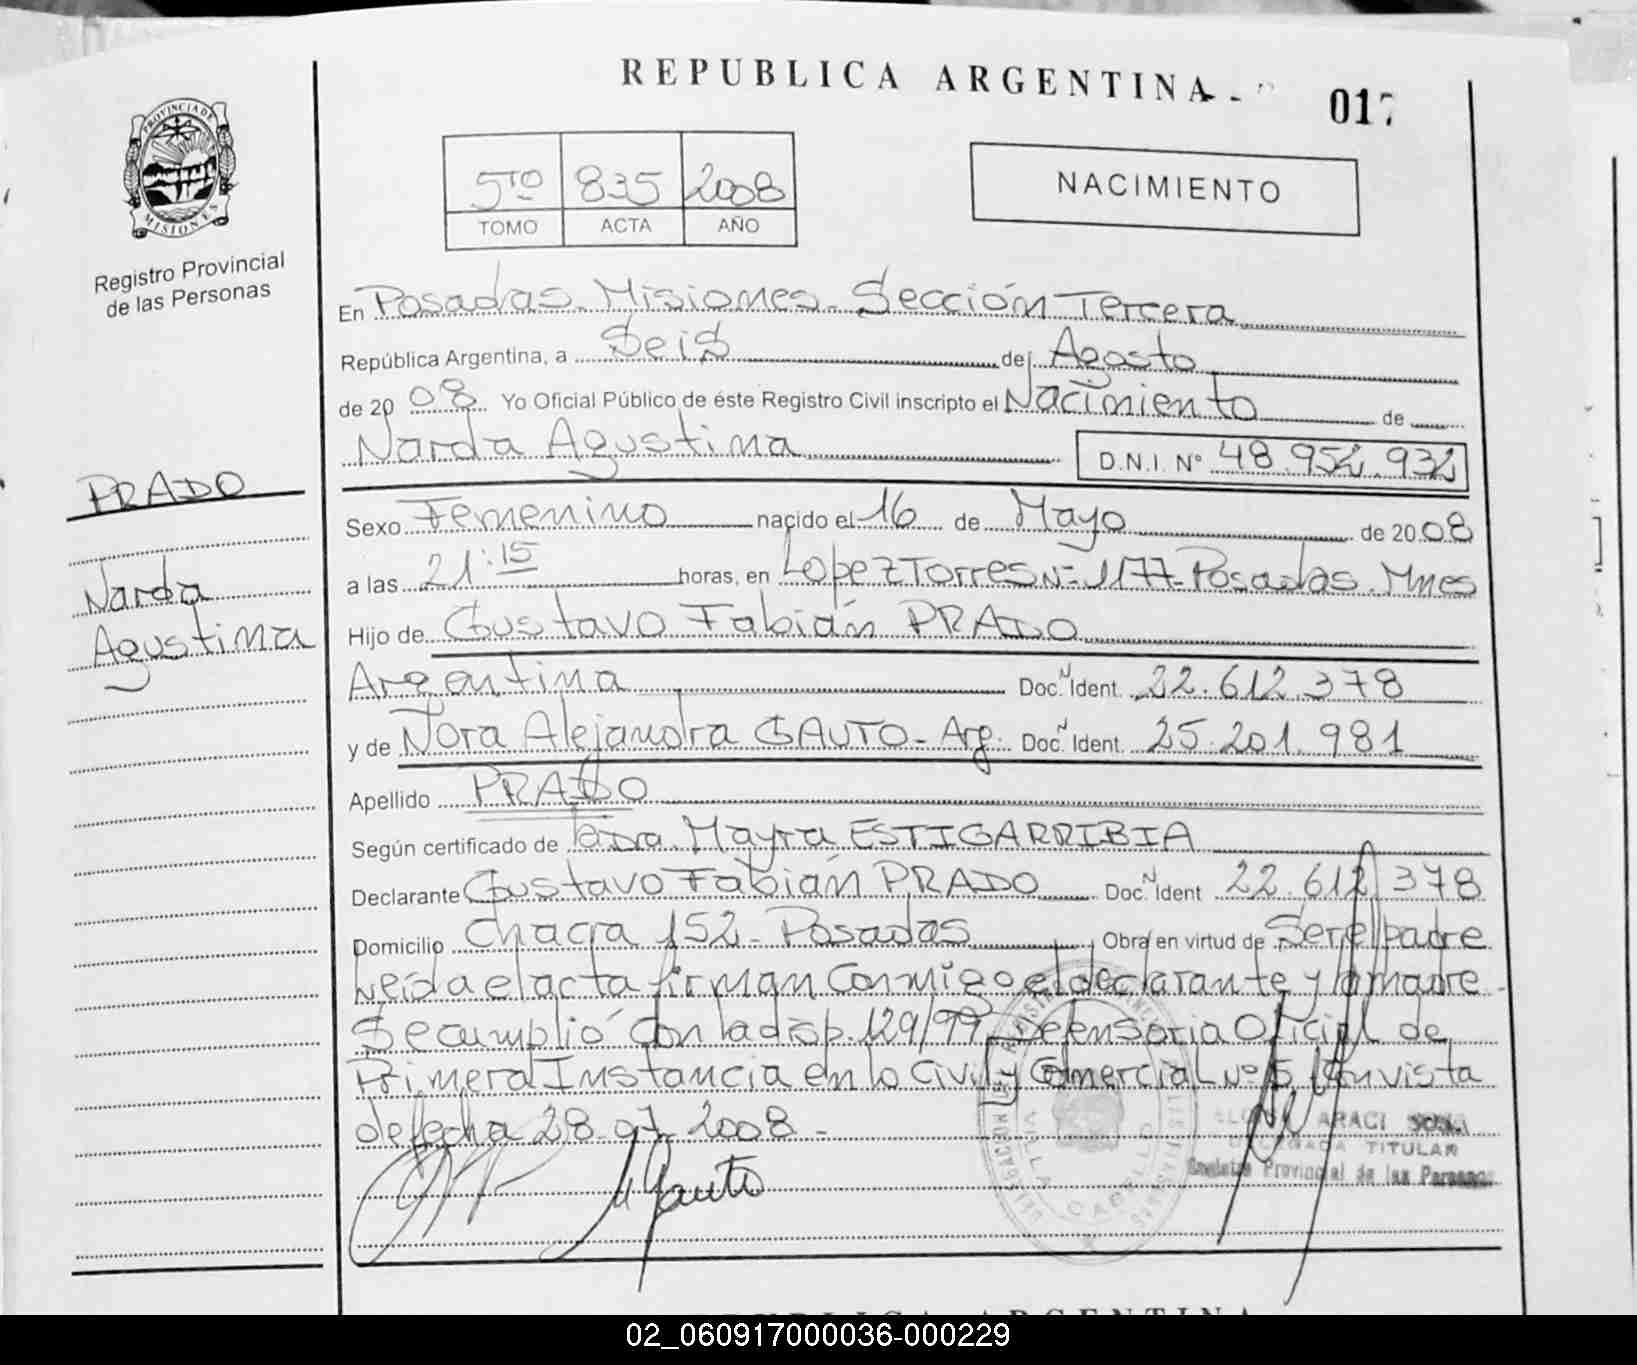 REPUBLICA ARGENTINA
017
PROVINCIA DE
MISIONES
Registro Provincial
de las Personas
5TO 835 2008
TOMO ACTA AÑO
NACIMIENTO
En Posadas. Misiones. Sección Tercera
República Argentina, a Seis de Agosto
de 2008 Yo Oficial Público de éste Registro Civil inscripto el Nacimiento de
Narda Agustina D.N.I. Nº 48.952.932
PRADO
Narda
Agustina
Sexo Femenino nacido el 16 de Mayo de 2008
a las 21:15 horas, en Lopez Torres Nº 1177-Posadas. Mnes
Hijo de Gustavo Fabián PRADO
Argentina Doc. N Ident. 22.612.378
y de Nora Alejandra GAUTO - Arg. Doc. N Ident. 25.201.981
Apellido PRADO
Según certificado de la Dra. Mayra ESTIGARRIBIA
Declarante Gustavo Fabián PRADO Doc. N Ident 22.612.378
Domicilio Chacra 152 - Posadas Obra en virtud de Ser el padre
Leída el acta firman conmigo el declarante y la madre
Se cumplió con la disp. 129/99 Defensoria Oficial de
Primera Instancia en lo Civil y Comercial Nº 5 Con vista
de fecha 28-07-2008 -
Gauto
ARACI
TITULAR
Registro Provincial de las Personas
VILLA CABELLO
REPUBLICA ARGENTINA
02_060917000036-000229